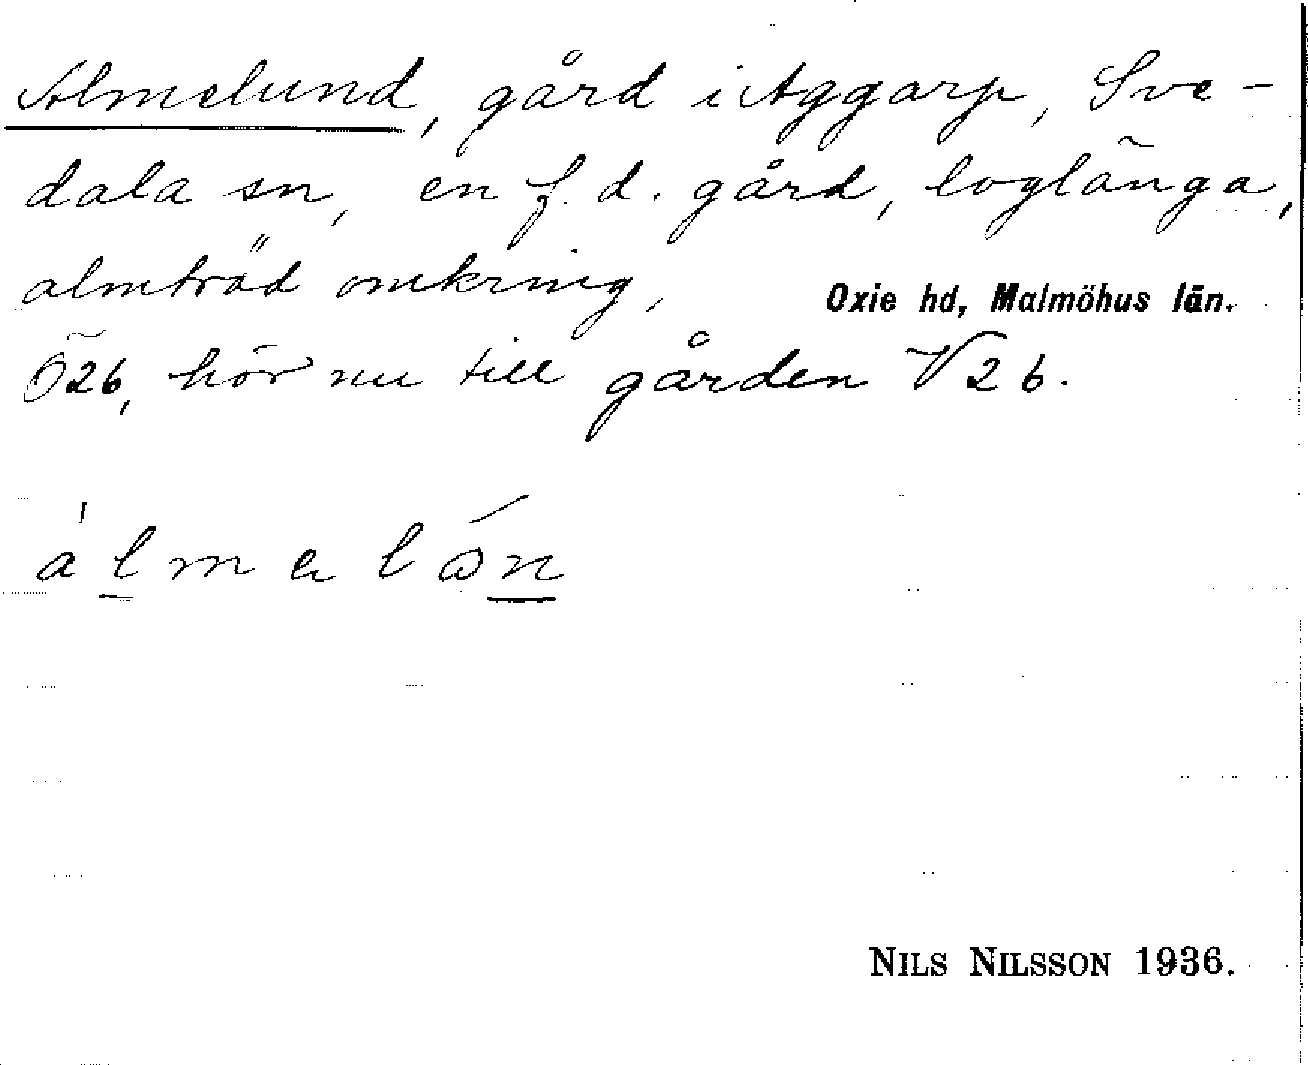 Almelund, gård i Aggarp, Sve-
dala sn, en f.d. gård, loglänga,
almträd omkring,
Oxie hd, Malmöhus län.
Ö26, hör nu till gården V26.
NILS NILSSON 1936.